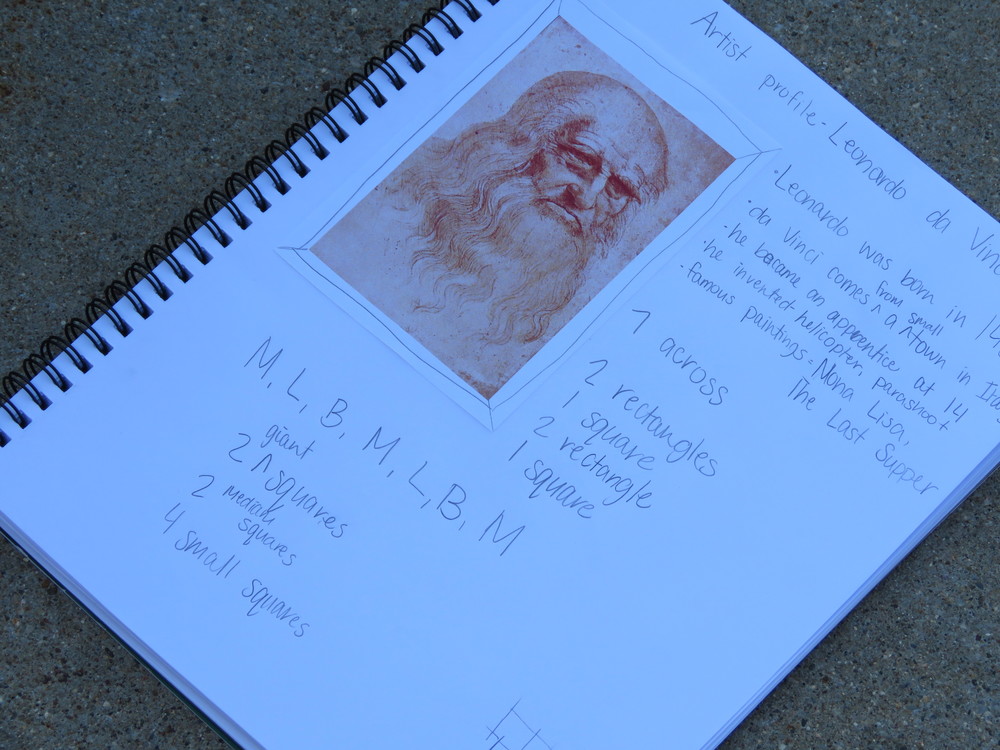 Artist profile - Leonardo da Vinc
· Leonardo was born in 14
· da Vinci comes from a small town in Ita
· he became an apprentice at 14
· he invented helicopter, parashoot
· famous paintings: Mona Lisa,
The Last Supper
7 across
2 rectangles
1 square
2 rectangle
1 square
M, L, B, M, L, B, M
2 giant squares
2 Mediam squares
4 small squares